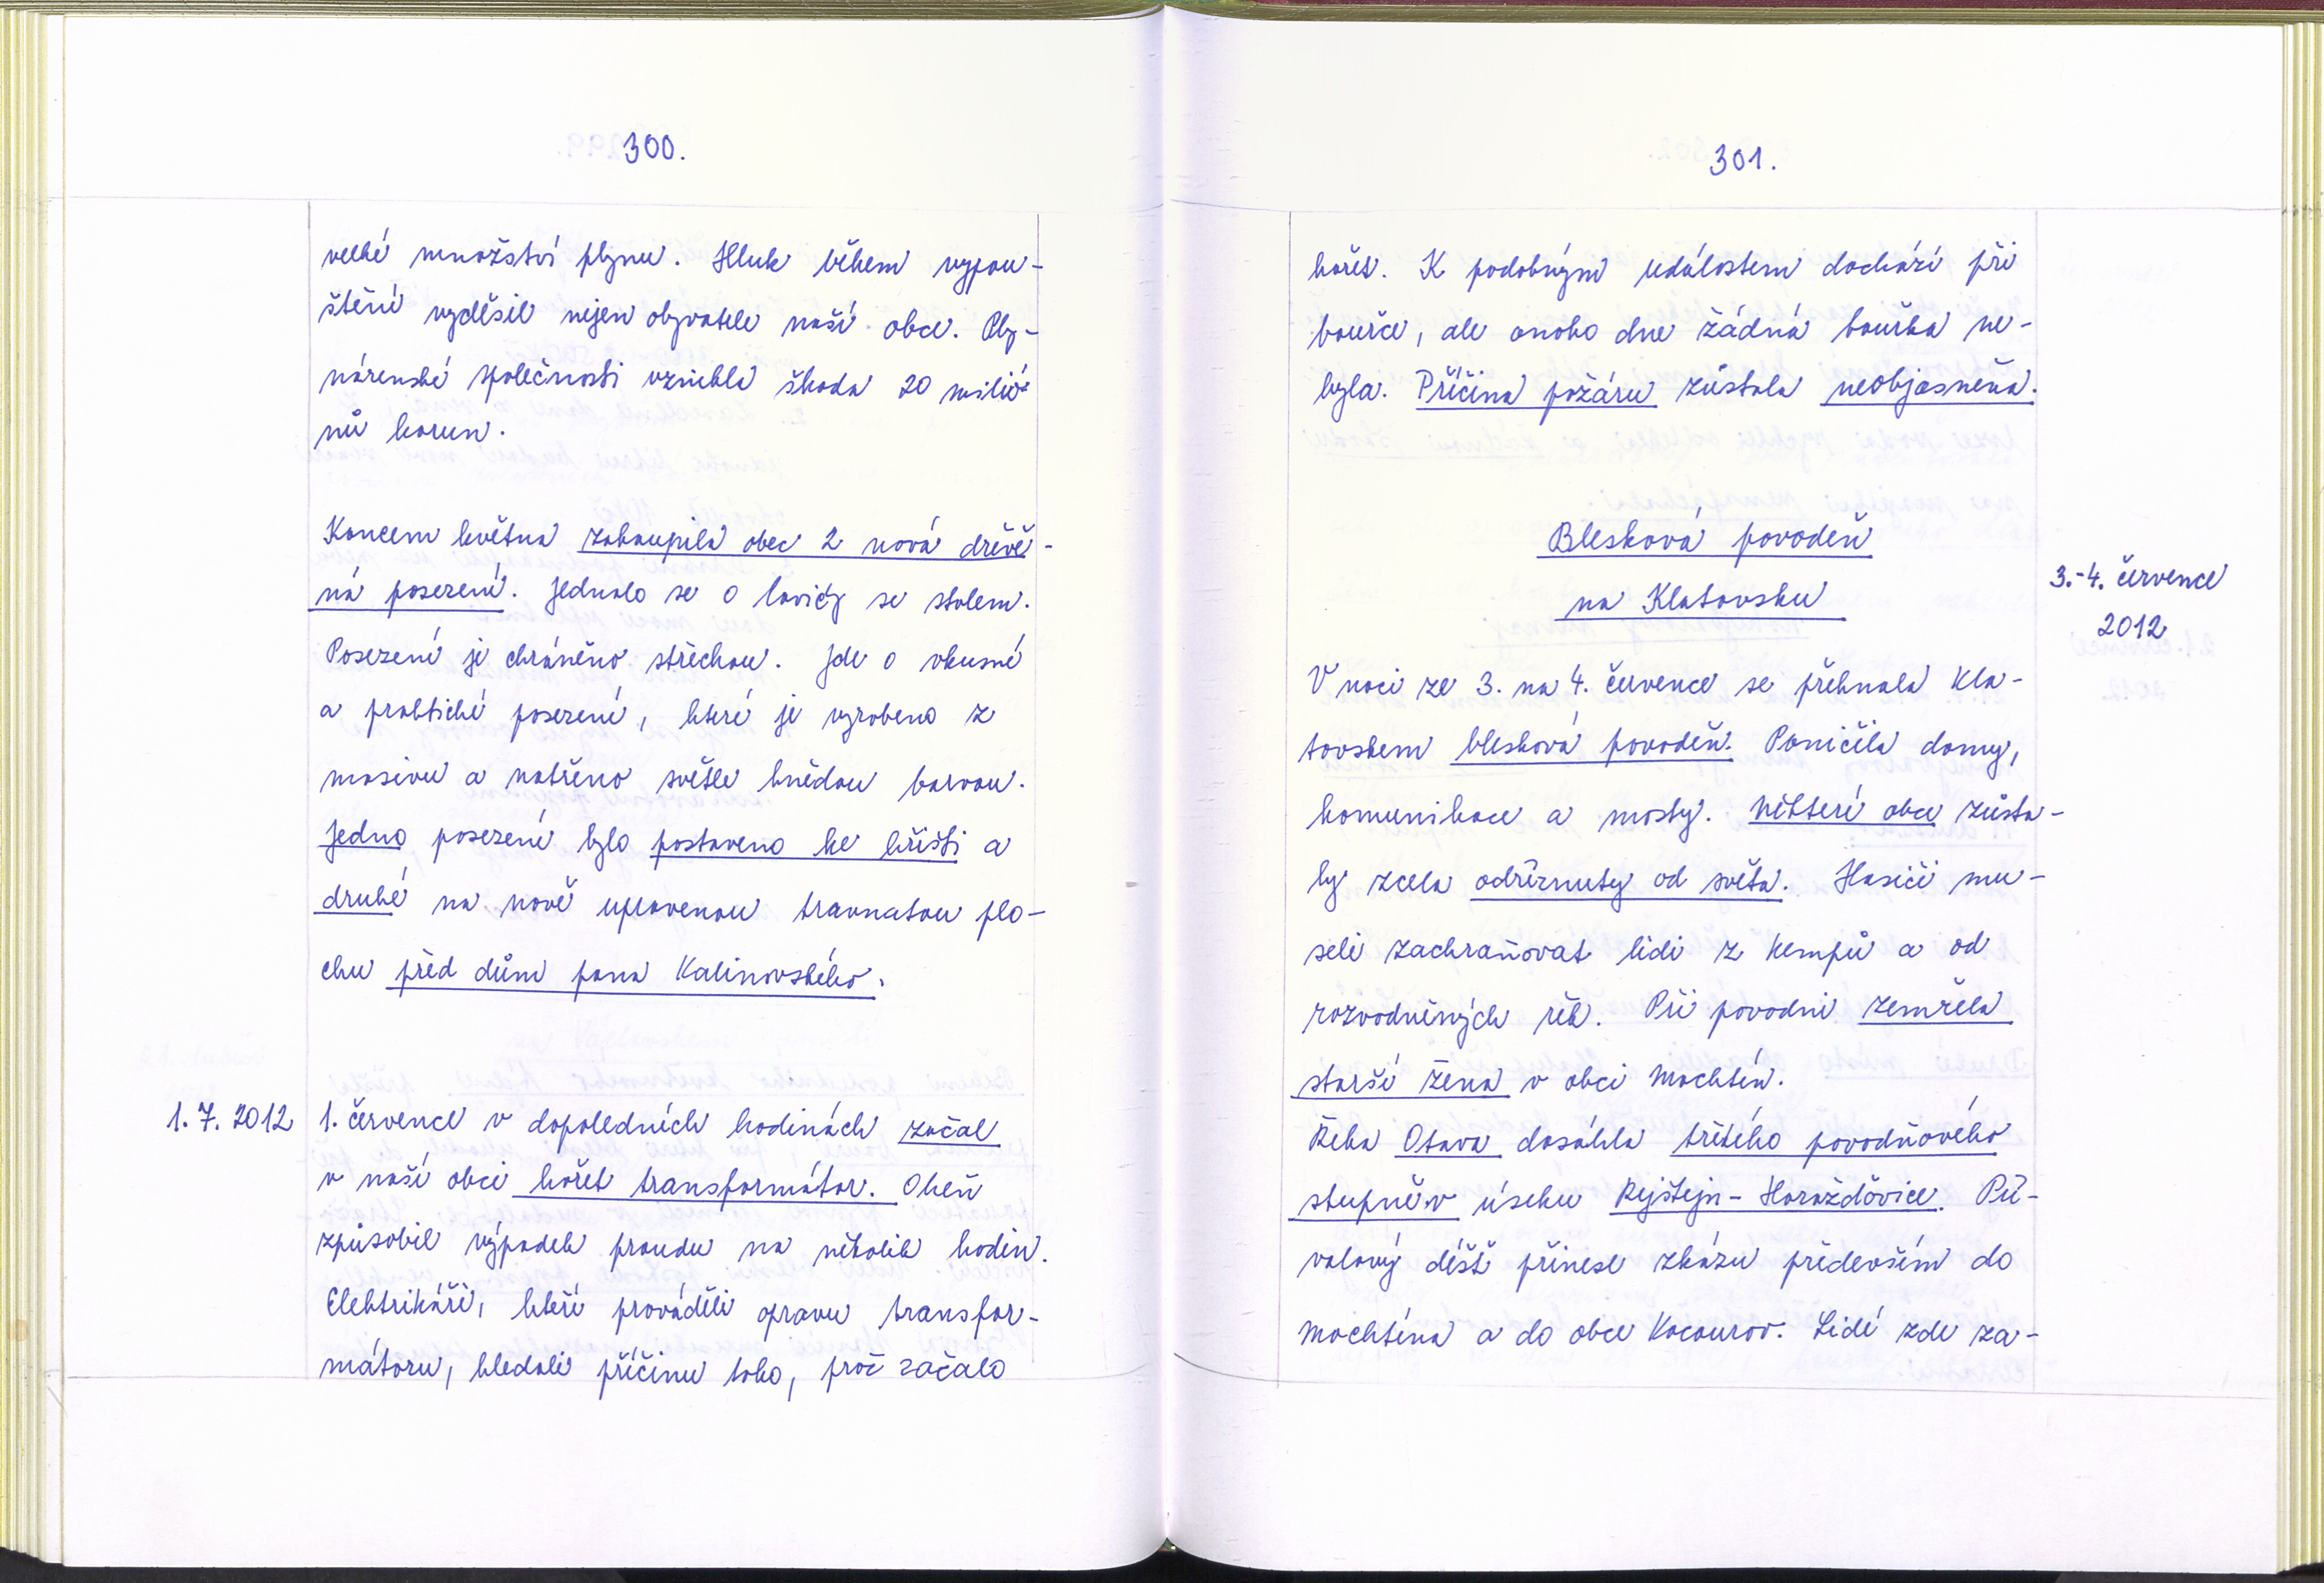 300.
velké množství plynu. Hluk během vypou-
štění vyděsil nejen obyvatele naší obce. Ply-
nárenské společnosti vznikla škoda 20 milió-
nů korun.
Koncem května zakoupila obec 2 nová dřevě-
ná posezení. Jednalo se o lavičky se stolem.
Posezení je chráněno střechou. Jde o vkusné
a praktické posezení, které je vyrobeno z
masivu a natřeno světle hnědou barvou.
Jedno posezení bylo postaveno ke hřišti a
druhé na nově upravenou travnatou plo-
chu před dům pana Kalinovského.
1. 7. 2012
1. července v dopoledních hodinách začal
v naší obci hořet transformátor. Oheň
způsobil výpadek proudu na několik hodin.
Elektrikáři, kteří prováděli opravu transfor-
mátoru, hledali příčinu toho, proč začalo
301.
hořet. K podobným událostem dochází při
bouřce, ale onoho dne žádná bouřka ne-
byla. Příčina požáru zůstala neobjasněna.
Blesková povodeň
na Klatovsku
3.-4. července
2012
V noci ze 3. na 4. července se přehnala Kla-
tovskem blesková povodeň. Poničila domy,
komunikace a mosty. Některé obce zůsta-
ly zcela odříznuty od světa. Hasiči mu-
seli zachraňovat lidi z kempů a od
rozvodněných řek. Při povodni zemřela
starší žena v obci Mochtín.
Řeka Otava dosáhla třetího povodňového
stupně v úseku Rejštejn - Horažďovice. Pří-
valový déšť přinesl zkázu především do
Mochtína a do obce Kocourov. Lidé zde za-